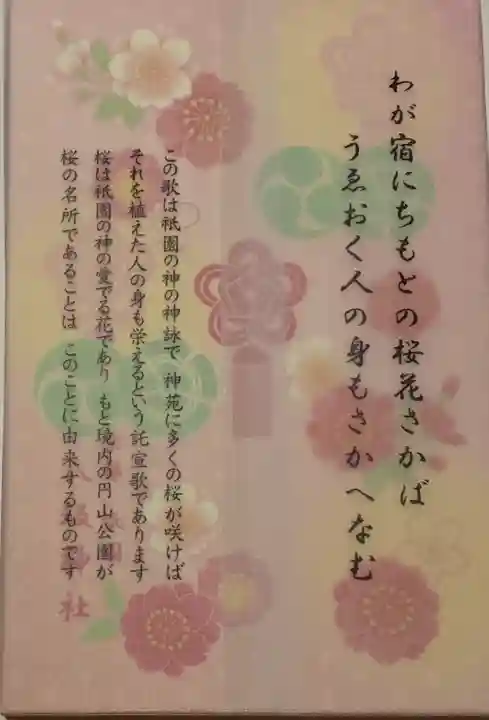 わが宿にちもとの桜花さかば
うゑおく人の身もさかへなむ
この歌は祇園の神の神詠で 神苑に多くの桜が咲けば
それを植えた人の身も栄えるという託宣歌であります
桜は祇園の神の愛でる花であり もと境内の円山公園が
桜の名所であることは このことに由来するものです
社